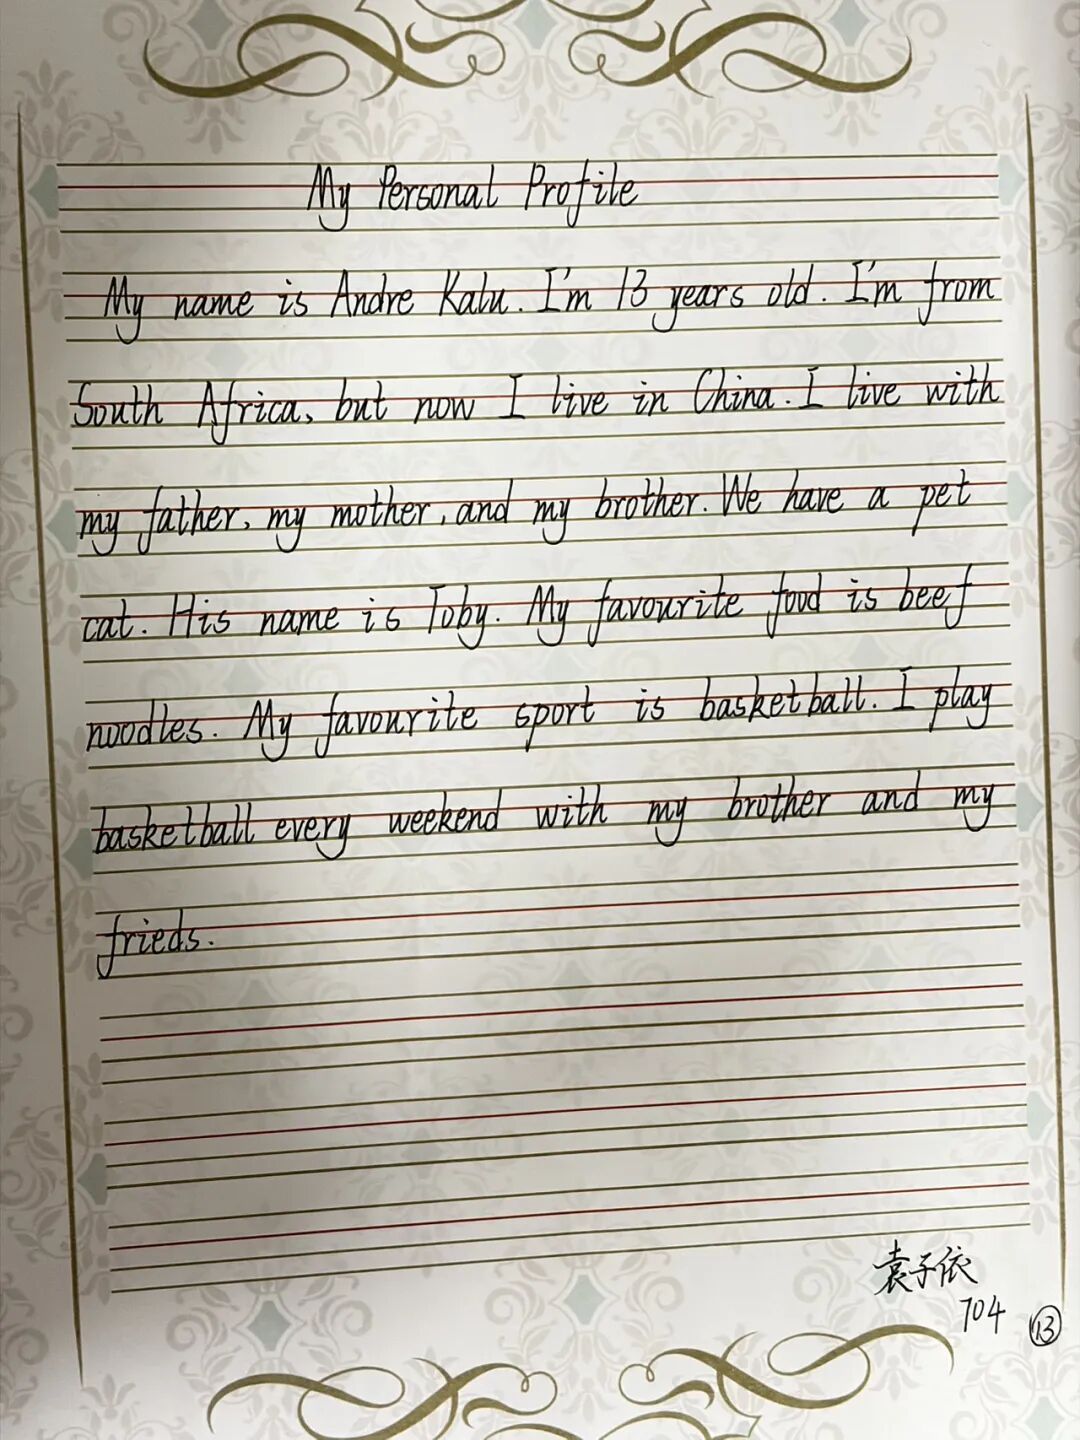 My Personal Profile
My name is Andre Kalu. I'm 13 years old. I'm from
South Africa, but now I live in China. I live with
my father, my mother, and my brother. We have a pet
cat. His name is Toby. My favourite food is beef
noodles. My favourite sport is basketball. I play
basketball every weekend with my brother and my
frieds.
袁子依
704
13